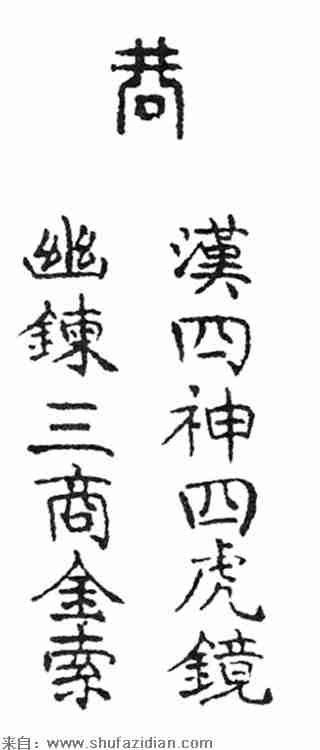 商
漢四神四虎鏡
幽鍊三商金索
来自：www.shufazidian.com